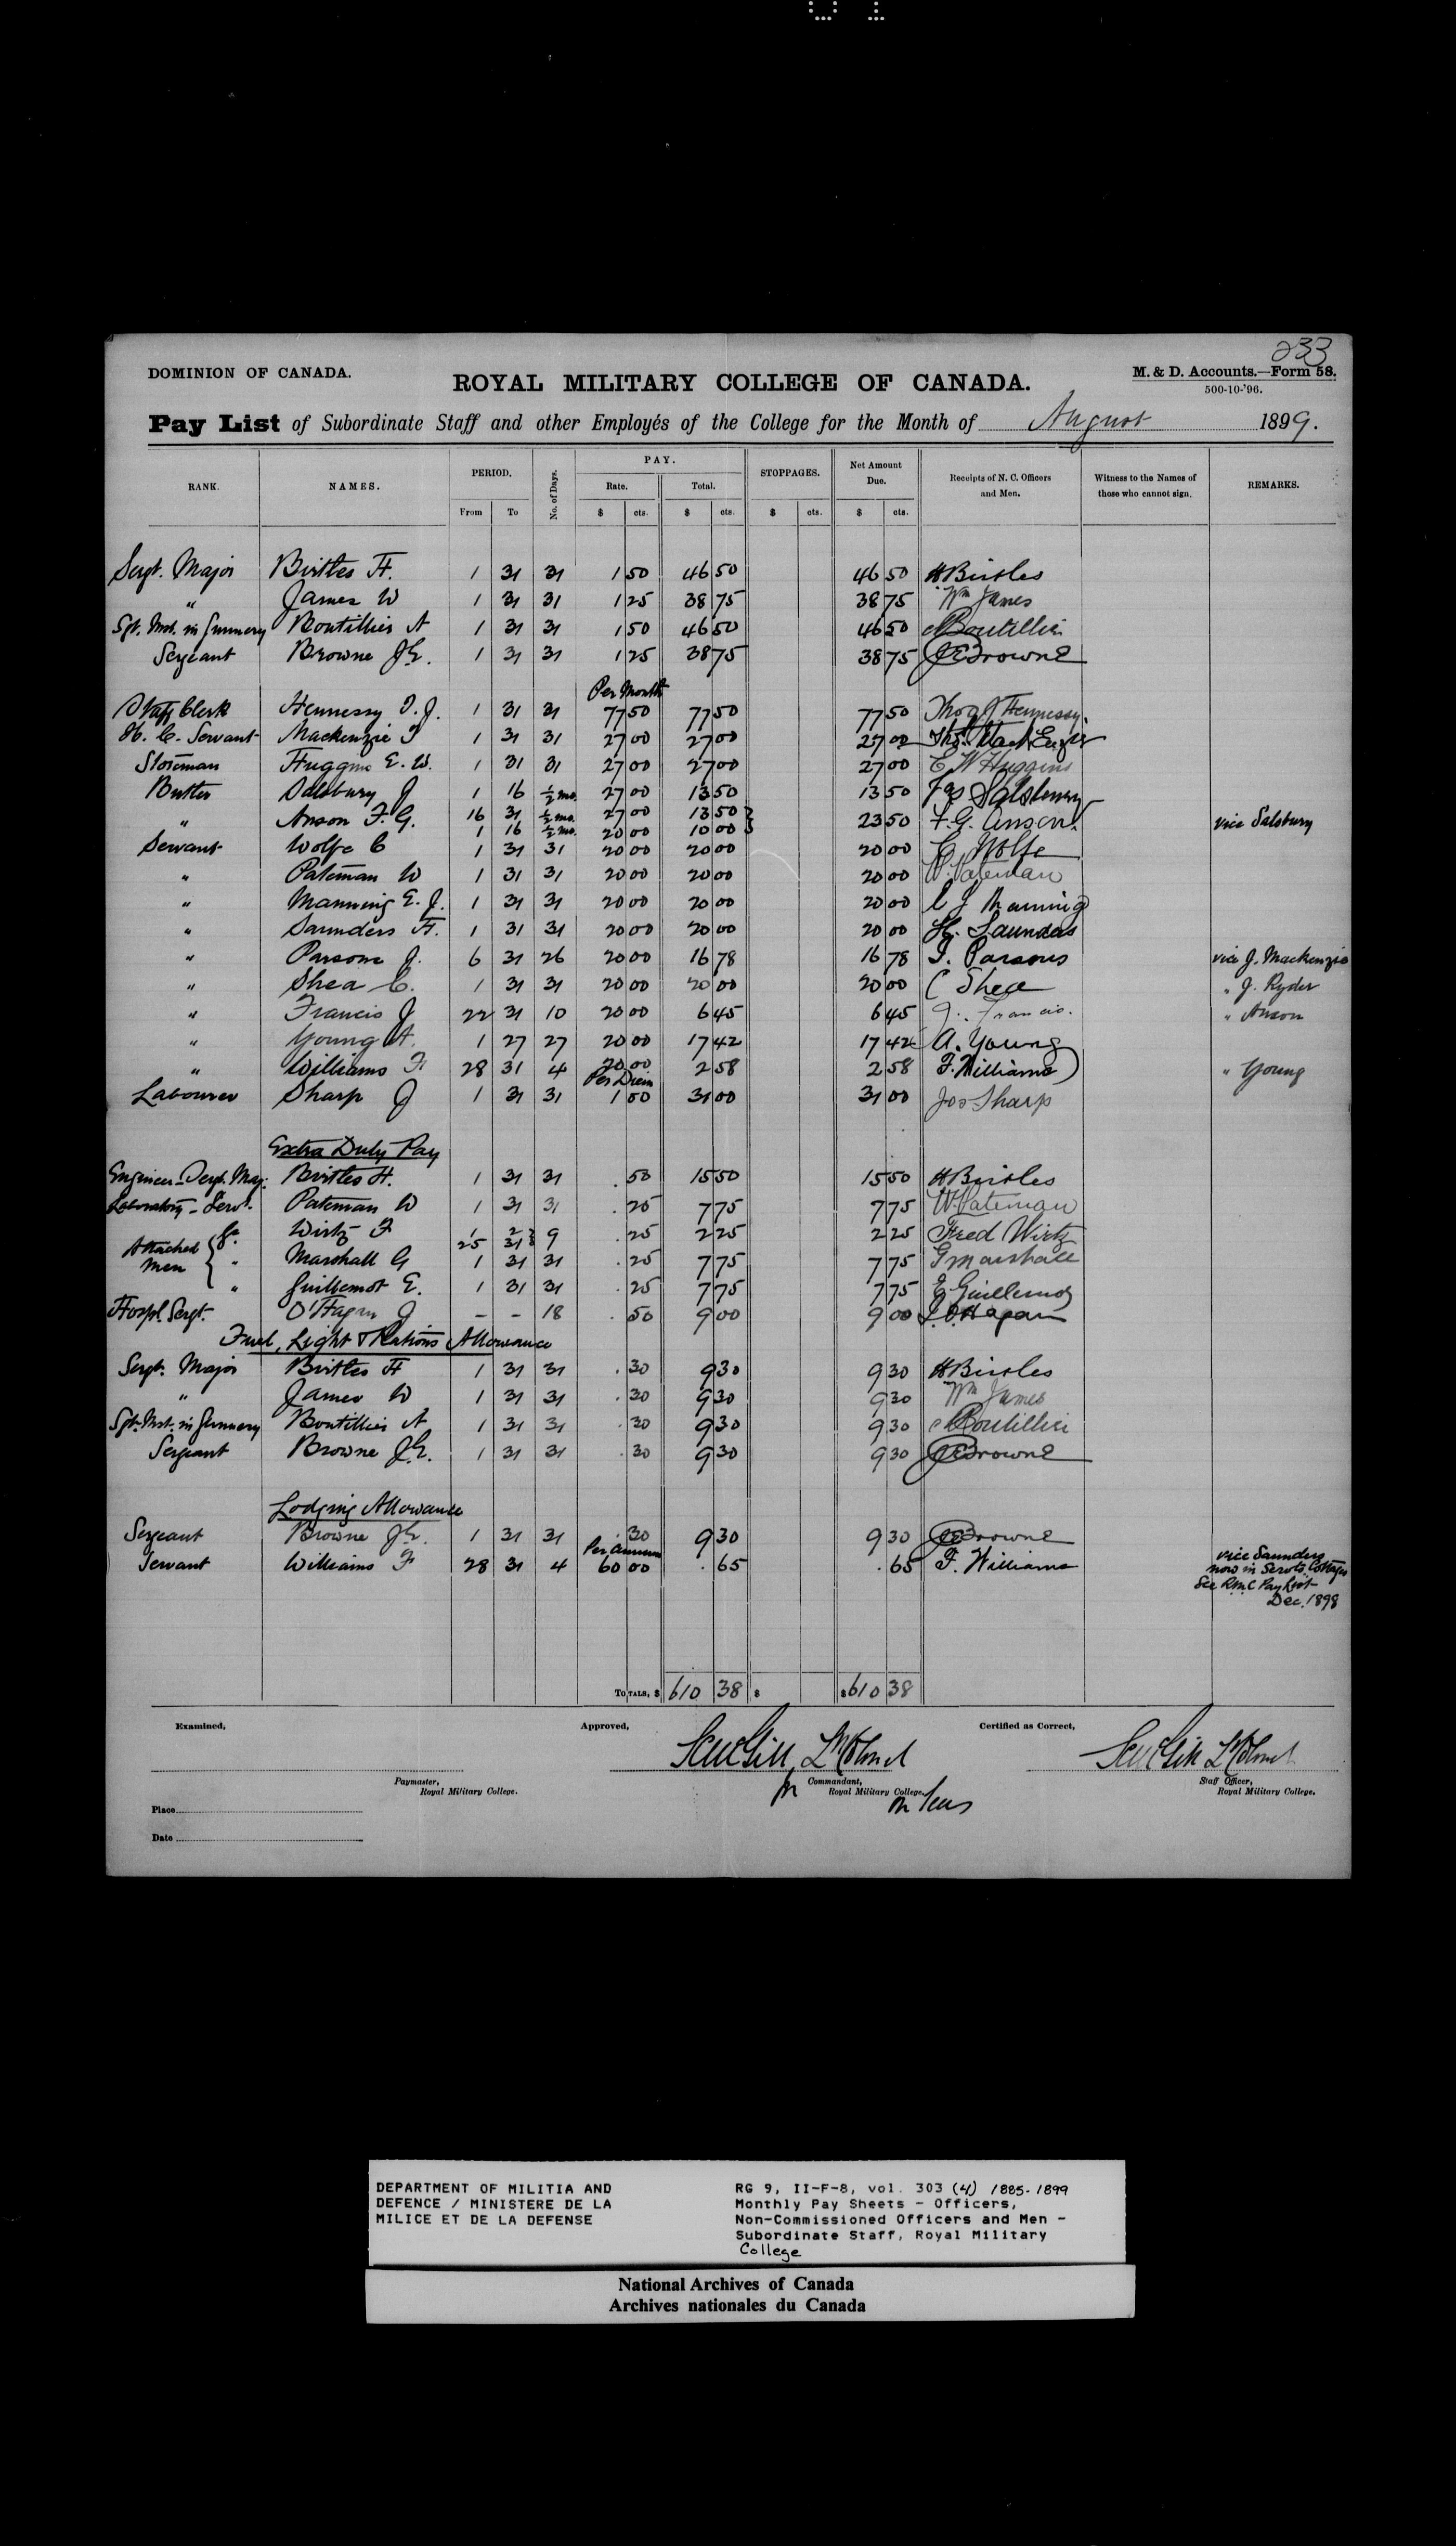 233
DOMINION OF CANADA.
ROYAL MILITARY COLLEGE OF CANADA.
M. & D. Accounts.—Form 58.
500-10-'96.
Pay List of Subordinate Staff and other Employés of the College for the Month of August 1899.
RANK. NAMES. PERIOD. From To No. of Days. PAY. Rate. $ cts. Total. $ cts. STOPPAGES. $ cts. Net Amount Due. $ cts. Receipts of N. C. Officers and Men. Witness to the Names of those who cannot sign. REMARKS.
Sergt. Major Birtles H. 1 31 31 1 50 46 50 46 50 H Birtles
" James W 1 31 31 1 25 38 75 38 75 Wm James
Sgt. Inst. in Gunnery Boutillier A 1 31 31 1 50 46 50 46 50 A Boutillier
Sergeant Browne J E. 1 31 31 1 25 38 75 38 75 J E Browne
Per Month
Staff Clerk Hennessy T. J. 1 31 31 77 50 77 50 77 50 Thos J Hennessy.
H. C. Servant Mackenzie T 1 31 31 27 00 27 00 27 00 Thos. MacKenzie
Storeman Huggins E. W. 1 31 31 27 00 27 00 27 00 E W Huggins
Butler Salsbury J 1 16 ½ mo. 27 00 13 50 13 50 Jas Salsbury
" Anson F. G. 16 31 ½ mo. 27 00 13 50 } 23 50 F. G. Anson. vice Salsbury
1 16 ½ mo. 20 00 10 00 }
Servant Wolfe C 1 31 31 20 00 20 00 20 00 C Wolfe
" Pateman W 1 31 31 20 00 20 00 20 00 W. Pateman
" Manning E. J. 1 31 31 20 00 20 00 20 00 E J Manning
" Saunders H. 1 31 31 20 00 20 00 20 00 H. Saunders
" Parsons J. 6 31 26 20 00 16 78 16 78 J. Parsons vice J. Mackenzie
" Shea C. 1 31 31 20 00 20 00 20 00 C Shea " J. Ryder
" Francis J 22 31 10 20 00 6 45 6 45 J. Francis. " Anson
" Young A. 1 27 27 20 00 17 42 17 42 A. Young
" Williams F 28 31 4 20 00 2 58 2 58 F. Williams " Young
Per Diem
Labourer Sharp J 1 31 31 1 00 31 00 31 00 Jos Sharp
Extra Duty Pay
Engineer - Sergt. Maj. Birtles H. 1 31 31 . 50 15 50 15 50 H Birtles
Laboratory - Servt. Pateman W 1 31 31 . 25 7 75 7 75 W. Pateman
Attached Men { Gr. Wirtz F 1 2 } 9 . 25 2 25 2 25 Fred Wirtz
25 31 }
" Marshall G 1 31 31 . 25 7 75 7 75 G Marshall
" Guillemot E. 1 31 31 . 25 7 75 7 75 E Guillemot
Hospl. Sergt. O'Hagan J - - 18 . 50 9 00 9 00 J. O'Hagan
Fuel, Light & Rations Allowance
Sergt. Major Birtles H 1 31 31 . 30 9 30 9 30 H Birtles
" James W 1 31 31 . 30 9 30 9 30 Wm James
Sgt. Inst. in Gunnery Boutillier A 1 31 31 . 30 9 30 9 30 A Boutillier
Sergeant Browne J E. 1 31 31 . 30 9 30 9 30 J E Browne
Lodging Allowance
Sergeant Browne J E. 1 31 31 . 30 9 30 9 30 J E Browne
Per Annum
Servant Williams F 28 31 4 60 00 . 65 . 65 F. Williams vice Saunders
now in Servts. Cottages
See R.M.C Pay List
Dec. 1898
TOTALS, $ 610 38 $ $ 610 38
Examined, Approved, Certified as Correct,
Paymaster, Royal Military College.
for Commandant, Royal Military College. on leave
Staff Officer, Royal Military College.
Place
Date
DEPARTMENT OF MILITIA AND
DEFENCE / MINISTERE DE LA
MILICE ET DE LA DEFENSE
RG 9, II-F-8, vol. 303 (4) 1885-1899
Monthly Pay Sheets - Officers,
Non-Commissioned Officers and Men -
Subordinate Staff, Royal Military
College
National Archives of Canada
Archives nationales du Canada